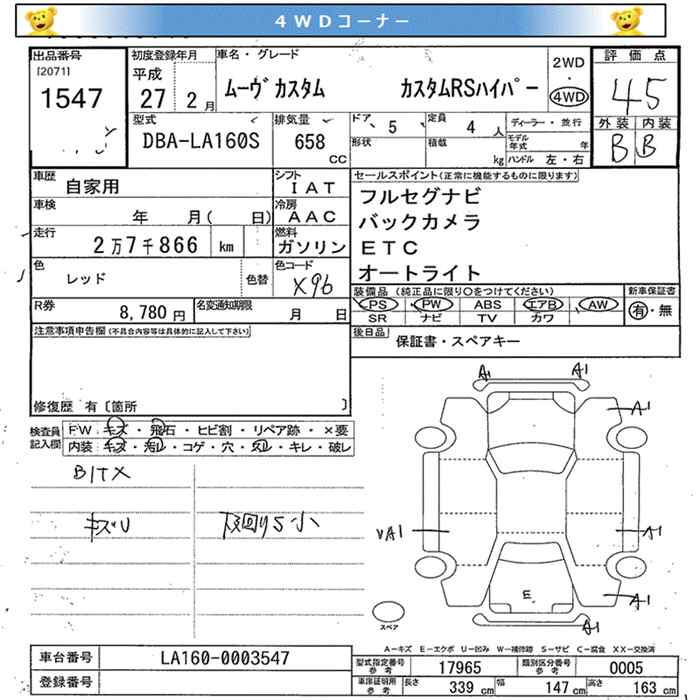 4WDコーナー
出品番号 初度登録年月 車名・グレード 2WD 評価点
[2071] 平成
1547 27年 2月 ムーヴ カスタム カスタムRSハイパー 4WD 45
型式 排気量 ドア 5 定員 4人 ディーラー・並行 外装 内装
DBA-LA160S 658 CC 形状 積載 kg モデル年式 年 B B
ハンドル 左・右
車歴 自家用 シフト IAT セールスポイント(正常に機能するものに限ります)
車検 年 月( 日) 冷房 AAC フルセグナビ
走行 2万7千866 km 燃料 ガソリン バックカメラ
ETC
色 レッド 色替 色コード X96 オートライト
R券 8,780円 名変通知期限 月 日 装備品(純正品に限り○をつけてください) 新車保証書
PS PW ABS エアB AW 有・無
SR ナビ TV カワ
注意事項申告欄(不具合内容等は具体的に記入して下さい) 後日品 保証書・スペアキー
修復歴 有〔箇所 〕
検査員記入欄 FW キズ・飛石・ヒビ割・リペア跡・×要
内装 キズ・汚レ・コゲ・穴・スレ・キレ・破レ
A1 A1
A1
BITX
キズU 下廻りS小
VA1 A1
E
A1
A1
スペア
A-キズ E-エクボ U-凹み W-補修跡 S-サビ C-腐食 XX-交換済
車台番号 LA160-0003547 型式指定番号参考 17965 類別区分番号参考 0005
登録番号 車庫証明用参考 長さ 339cm 幅 147cm 高さ 163cm